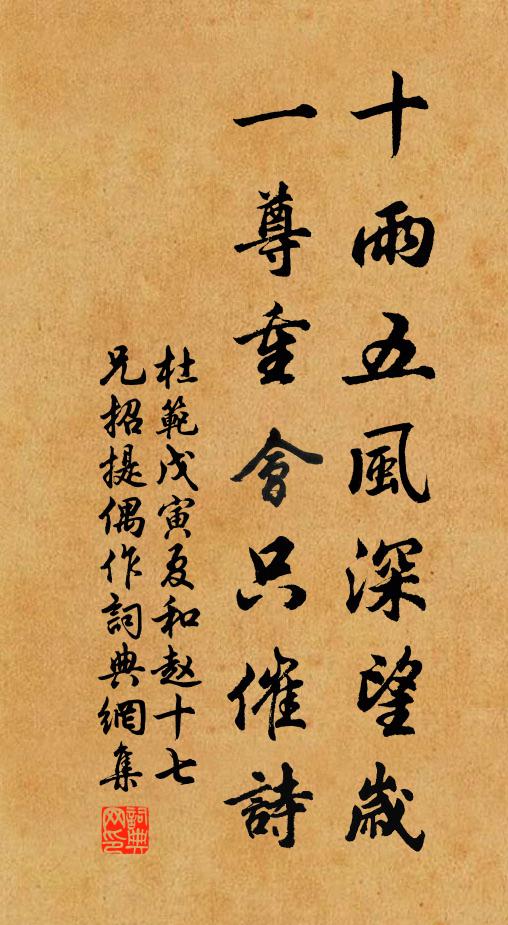 十雨五風深望歲
一尊重會只催詩
杜範戊寅夏和赵十七
兄招提偶作詞典網集
詞典网印